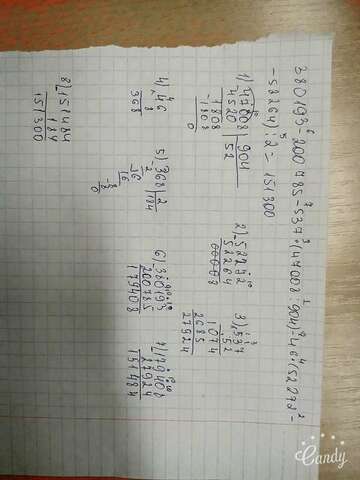 380193-200785-537·(47008:904)-46·(58272-
-58264):2=151300
1) 47008 | 904
4520 | 52
1808
-1808
0
2) -58272
58264
00008
3) 537
52
1074
2685
27924
4) 46
8
368
5) 368 | 2
2 | 184
16
16
8
0
6) -380193
200785
179408
7) 179408
27924
151484
8) 151484
184
151300
Candy